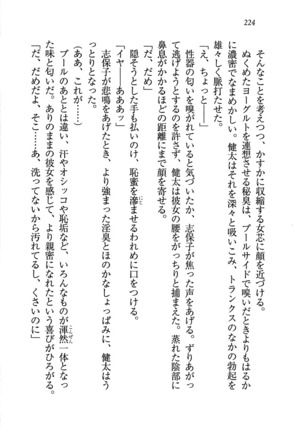 224
そんなことを考えつつ、かすかに収縮する女芯に顔を近づける。
ぬくめたヨーグルトを連想させる秘臭は、プールサイドで嗅いだときよりもはるか
に濃密でなまめかしい。健太はそれを深々と吸いこみ、トランクスのなかの勃起を
雄々しく脈打たせた。
「え、ちょっと——」
性器の匂いを嗅がれていると気づいたか、志保子が焦った声をあげる。ずりあがっ
て逃げようとするのを許さず、健太は彼女の腰をがっちりと捕まえた。蒸れた陰部に
鼻息がかかるほどの距離にまで顔を寄せる。
「だ、だめ」
隠そうとした手も払いのけ、恥蜜を滲ませるわれめに口をつける。
「イヤ——ああぁッ」
志保子が悲鳴をあげたとき、より強まった淫臭とほのかなしょっぱみに、健太はう
っとりとなった。
（ああ、これが——）
プールのあととは違い、汗やオシッコや恥垢など、いろんなものが渾然一体となっ
た味と匂いだ。ありのままの彼女を感じて、より親密になれたという喜びがひろがる。
「だ、だめだよ、そこ——あ、洗ってないから汚れてるし、くさいのに」